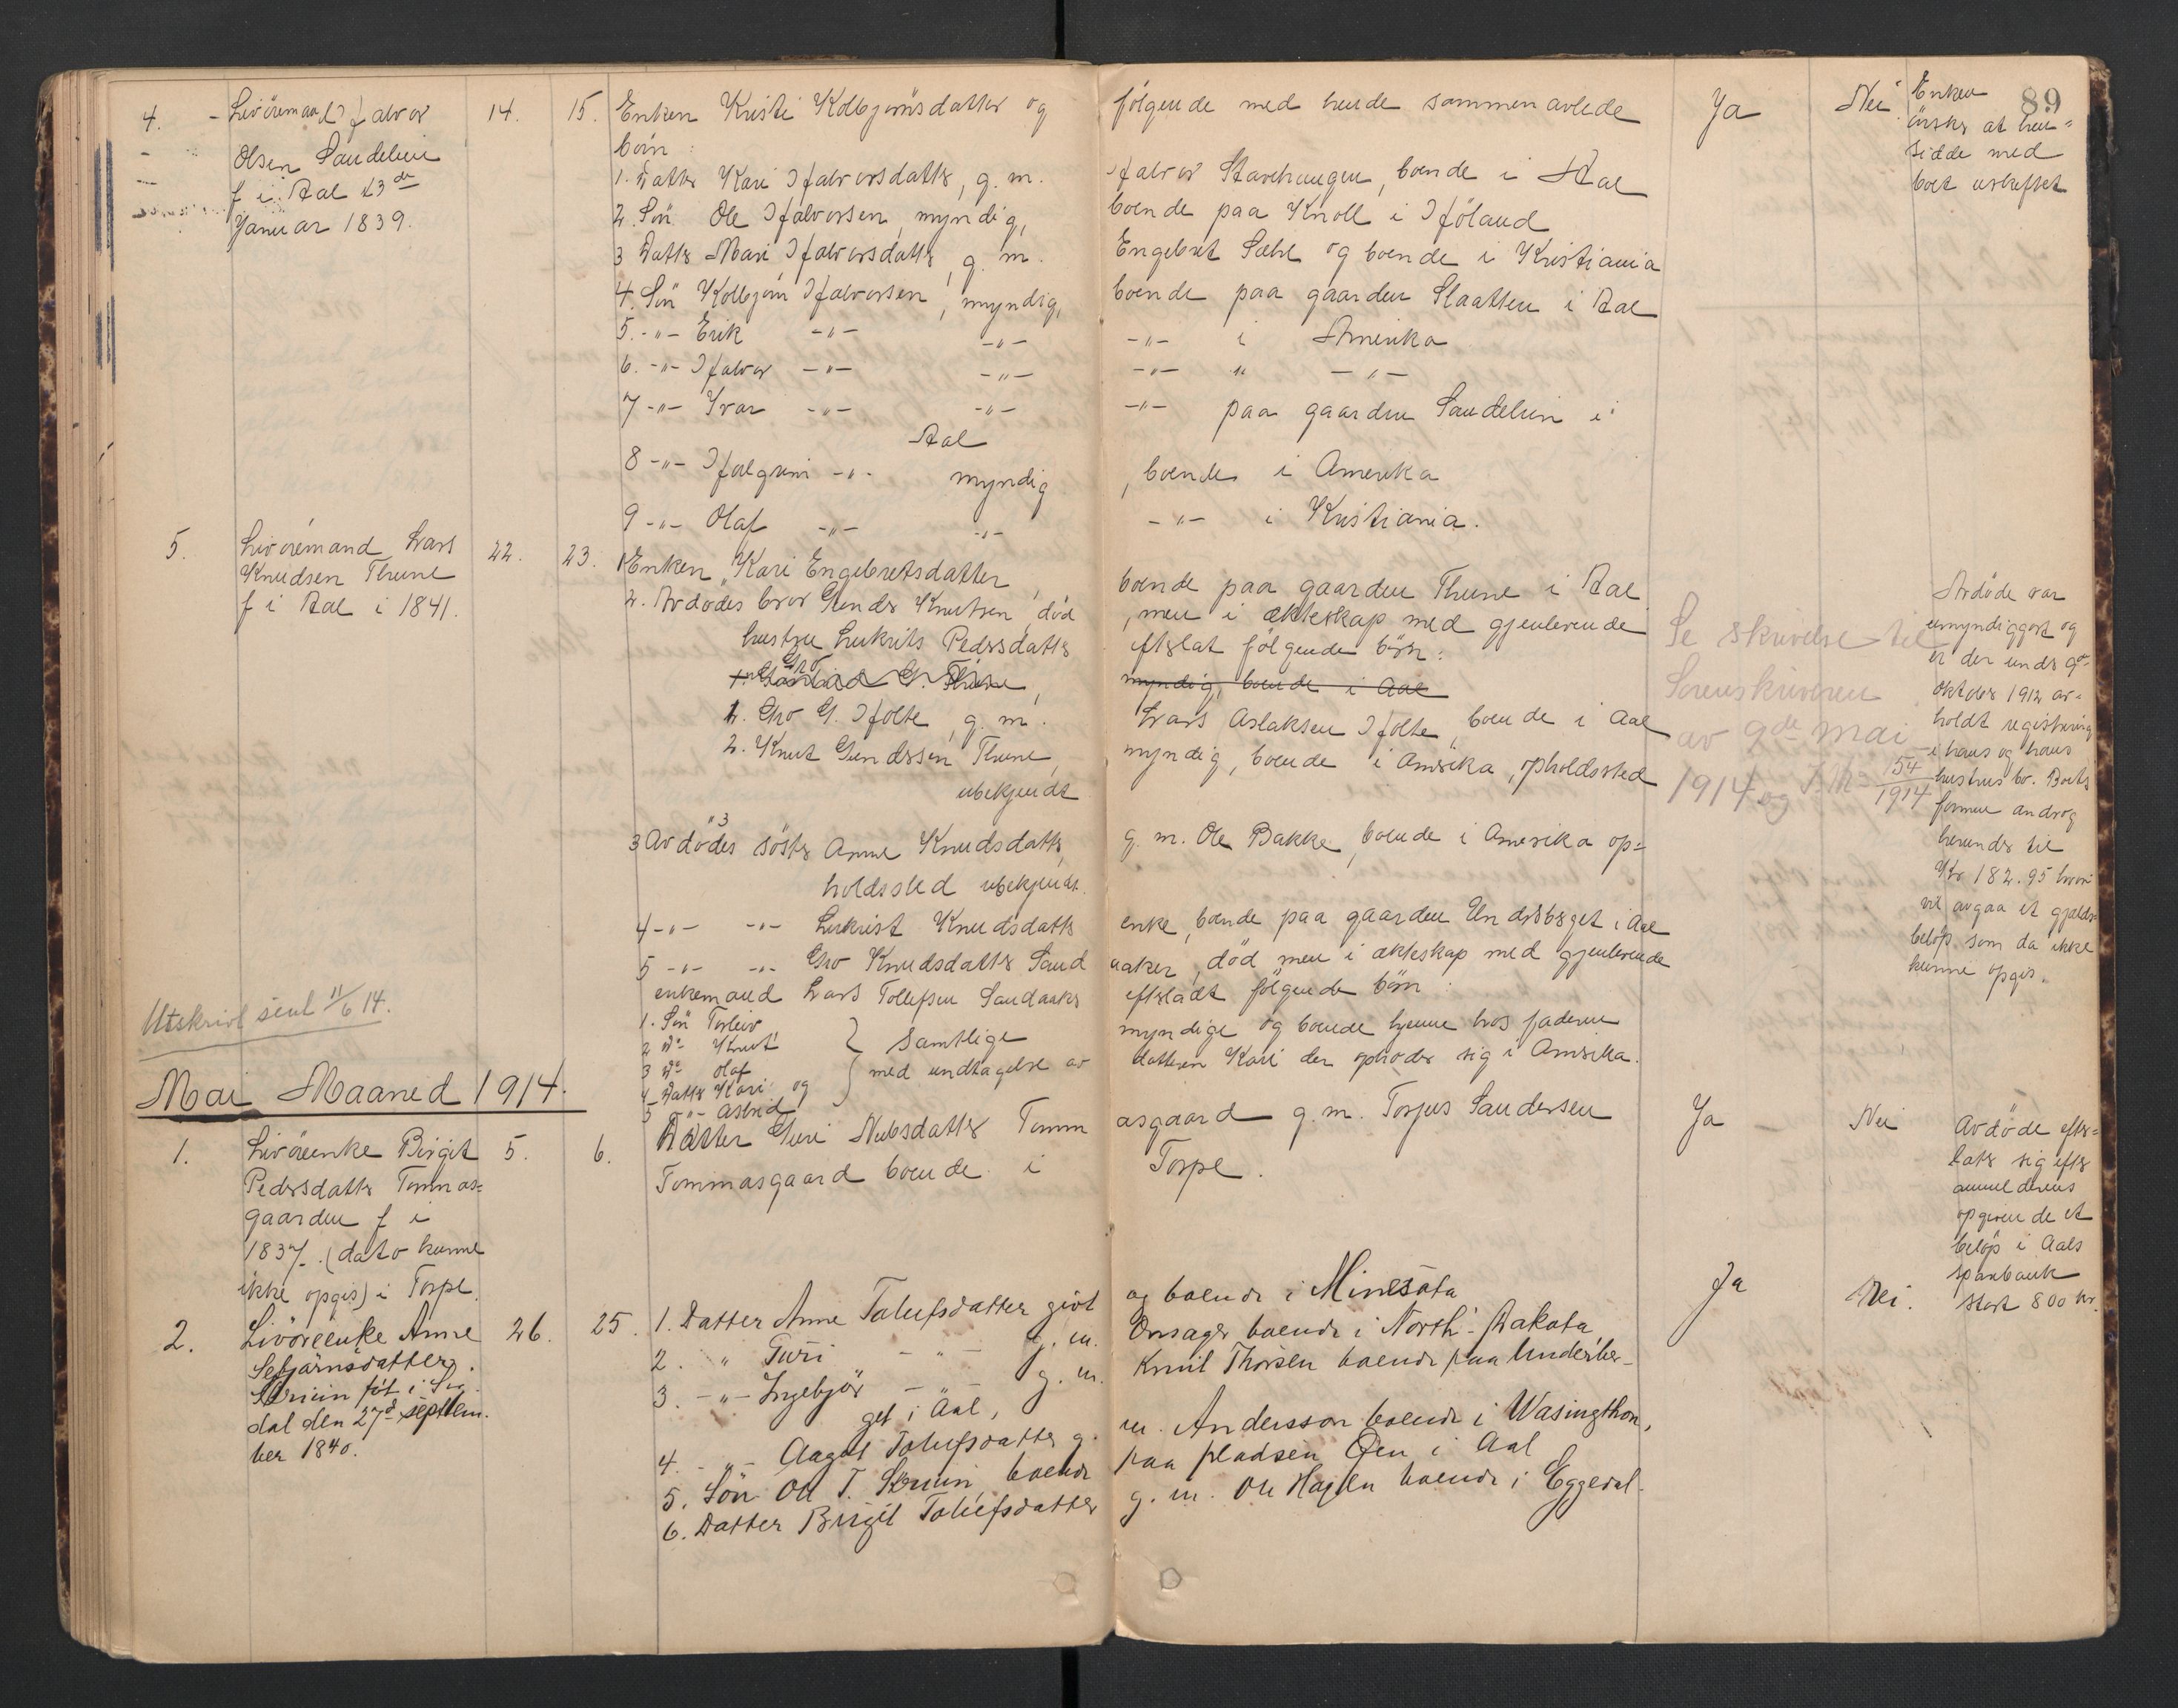 89
4. - Livöremand Halvor 14. 15. Enken Kristi Kolbjörnsdatter og følgende med hende sammenavlede Ja Nei Enken
Olsen Sandelien børn: ønsker at hen=
f i Aal 23de 1. Datter Kari Halvorsdatter, g. m. Halvor Stavehaugen, boende i Aal sidde med
Januar 1839. 2. Sön Ole Halvorsen, myndig, boende paa Knoll i Høland boet uskiftet
3 Datter Mari Halvorsdatter, g. m. Engebret Sæhl og boende i Kristiania
4. Sön Kolbjørn Halvorsen, myndig, boende paa gaarden Slaatten i Aal
5. -"- Erik -"- -"- -"- i Amerika
6. -"- Halvor -"- -"- -"- " -"-
7 -"- Ivar -"- -"- -"- paa gaarden Sandelien i
Aal
8 -"- Halgrim -"- myndig, boende i Amerika
9 -"- Olaf -"- -"- -"- i Kristiania.
5. Livöremand Lars 22. 23. 1 Enken Kari Engebretsdatter, boende paa gaarden Thune i Aal Avdøde var
Knudsen Thune 2. Avdødes bror Gunder Knutsen, død, men i ekteskap med gjenlevende Se skrivelse til umyndiggort og
f i Aal i 1841. hustru Lukrits Pedersdatter efterlat følgende børn: er der under 9de
G. Thune, myndig, boende i Aal Sorenskriveren oktober 1912 av=
1. Gro G. Holte, g. m. Lars Aslaksen Holte, boende i Aal av 9de mai holdt registrering
2. Knut Gundersen Thune, myndig, boende i Amerika, opholdssted 1914 og 154/1914 i hans og hans
ubekjendt hustrus bo. Boets
3 Avdødes söster Anne Knudsdatter, g. m. Ole Bakke, boende i Amerika op= formue androg
holdssted ubekjendt. herunder til
4 -"- -"- Lukrist Knudsdatter enke, boende paa gaarden Underberget i Aal Kr 182.95 hvori
5 -"- -"- Gro Knudsdatter Sand aaker, død men i ekteskap med gjenlevende vil avgaa et gjælds=
enkemand Lars Tollefsen Sandaaker efterladt følgende børn: beløp som da ikke
kunne opgis.
Utskrivt sent 11/6 14.
1. Sön Torleiv
2 do Knut } Samtlige myndige og boende hjemme hos faderen
3 do Olaf } med undtagelse av datteren Kari der opholder sig i Amerika.
4 Datter Kari og
5 -"- Astrid
Mai Maaned 1914.
1. Livöreenke Birgit 5. 6. Datter Guri Nubsdatter Tomm asgaard g. m. Torjus Sandersen Ja Nei Avdöde efter=
Pedersdatter Tommas= Tommasgaard boende i Torpe. later sig efter
gaarden f i anmelderens
1837. (dato kunne opgivende et
ikke opgis) i Torpe. beløp i Aals
sparebank
stort 800 kr.
2. Livöreenke Anne 26. 25. 1. Datter Anne Tolufsdatter givt og boende i Minesota Ja Nei.
Sebjørnsdatter 2. " Turi -"- g. m. Onsager boende i North-Dakota,
Skriun föt i Sig- 3. -"- Ingebjør -"- g. m. Knut Thorsen boende paa Underber-
dal den 27d septem- get i Aal,
ber 1840. 4. -"- Aagot Tolufsdatter g. m. Andersson boende i Wasingthon,
5. Sön Ole T. Skriun boende paa pladsen Øen i Aal
6. Datter Birgit Tolufsdatter g. m. Ole Haglen boende i Eggedal.